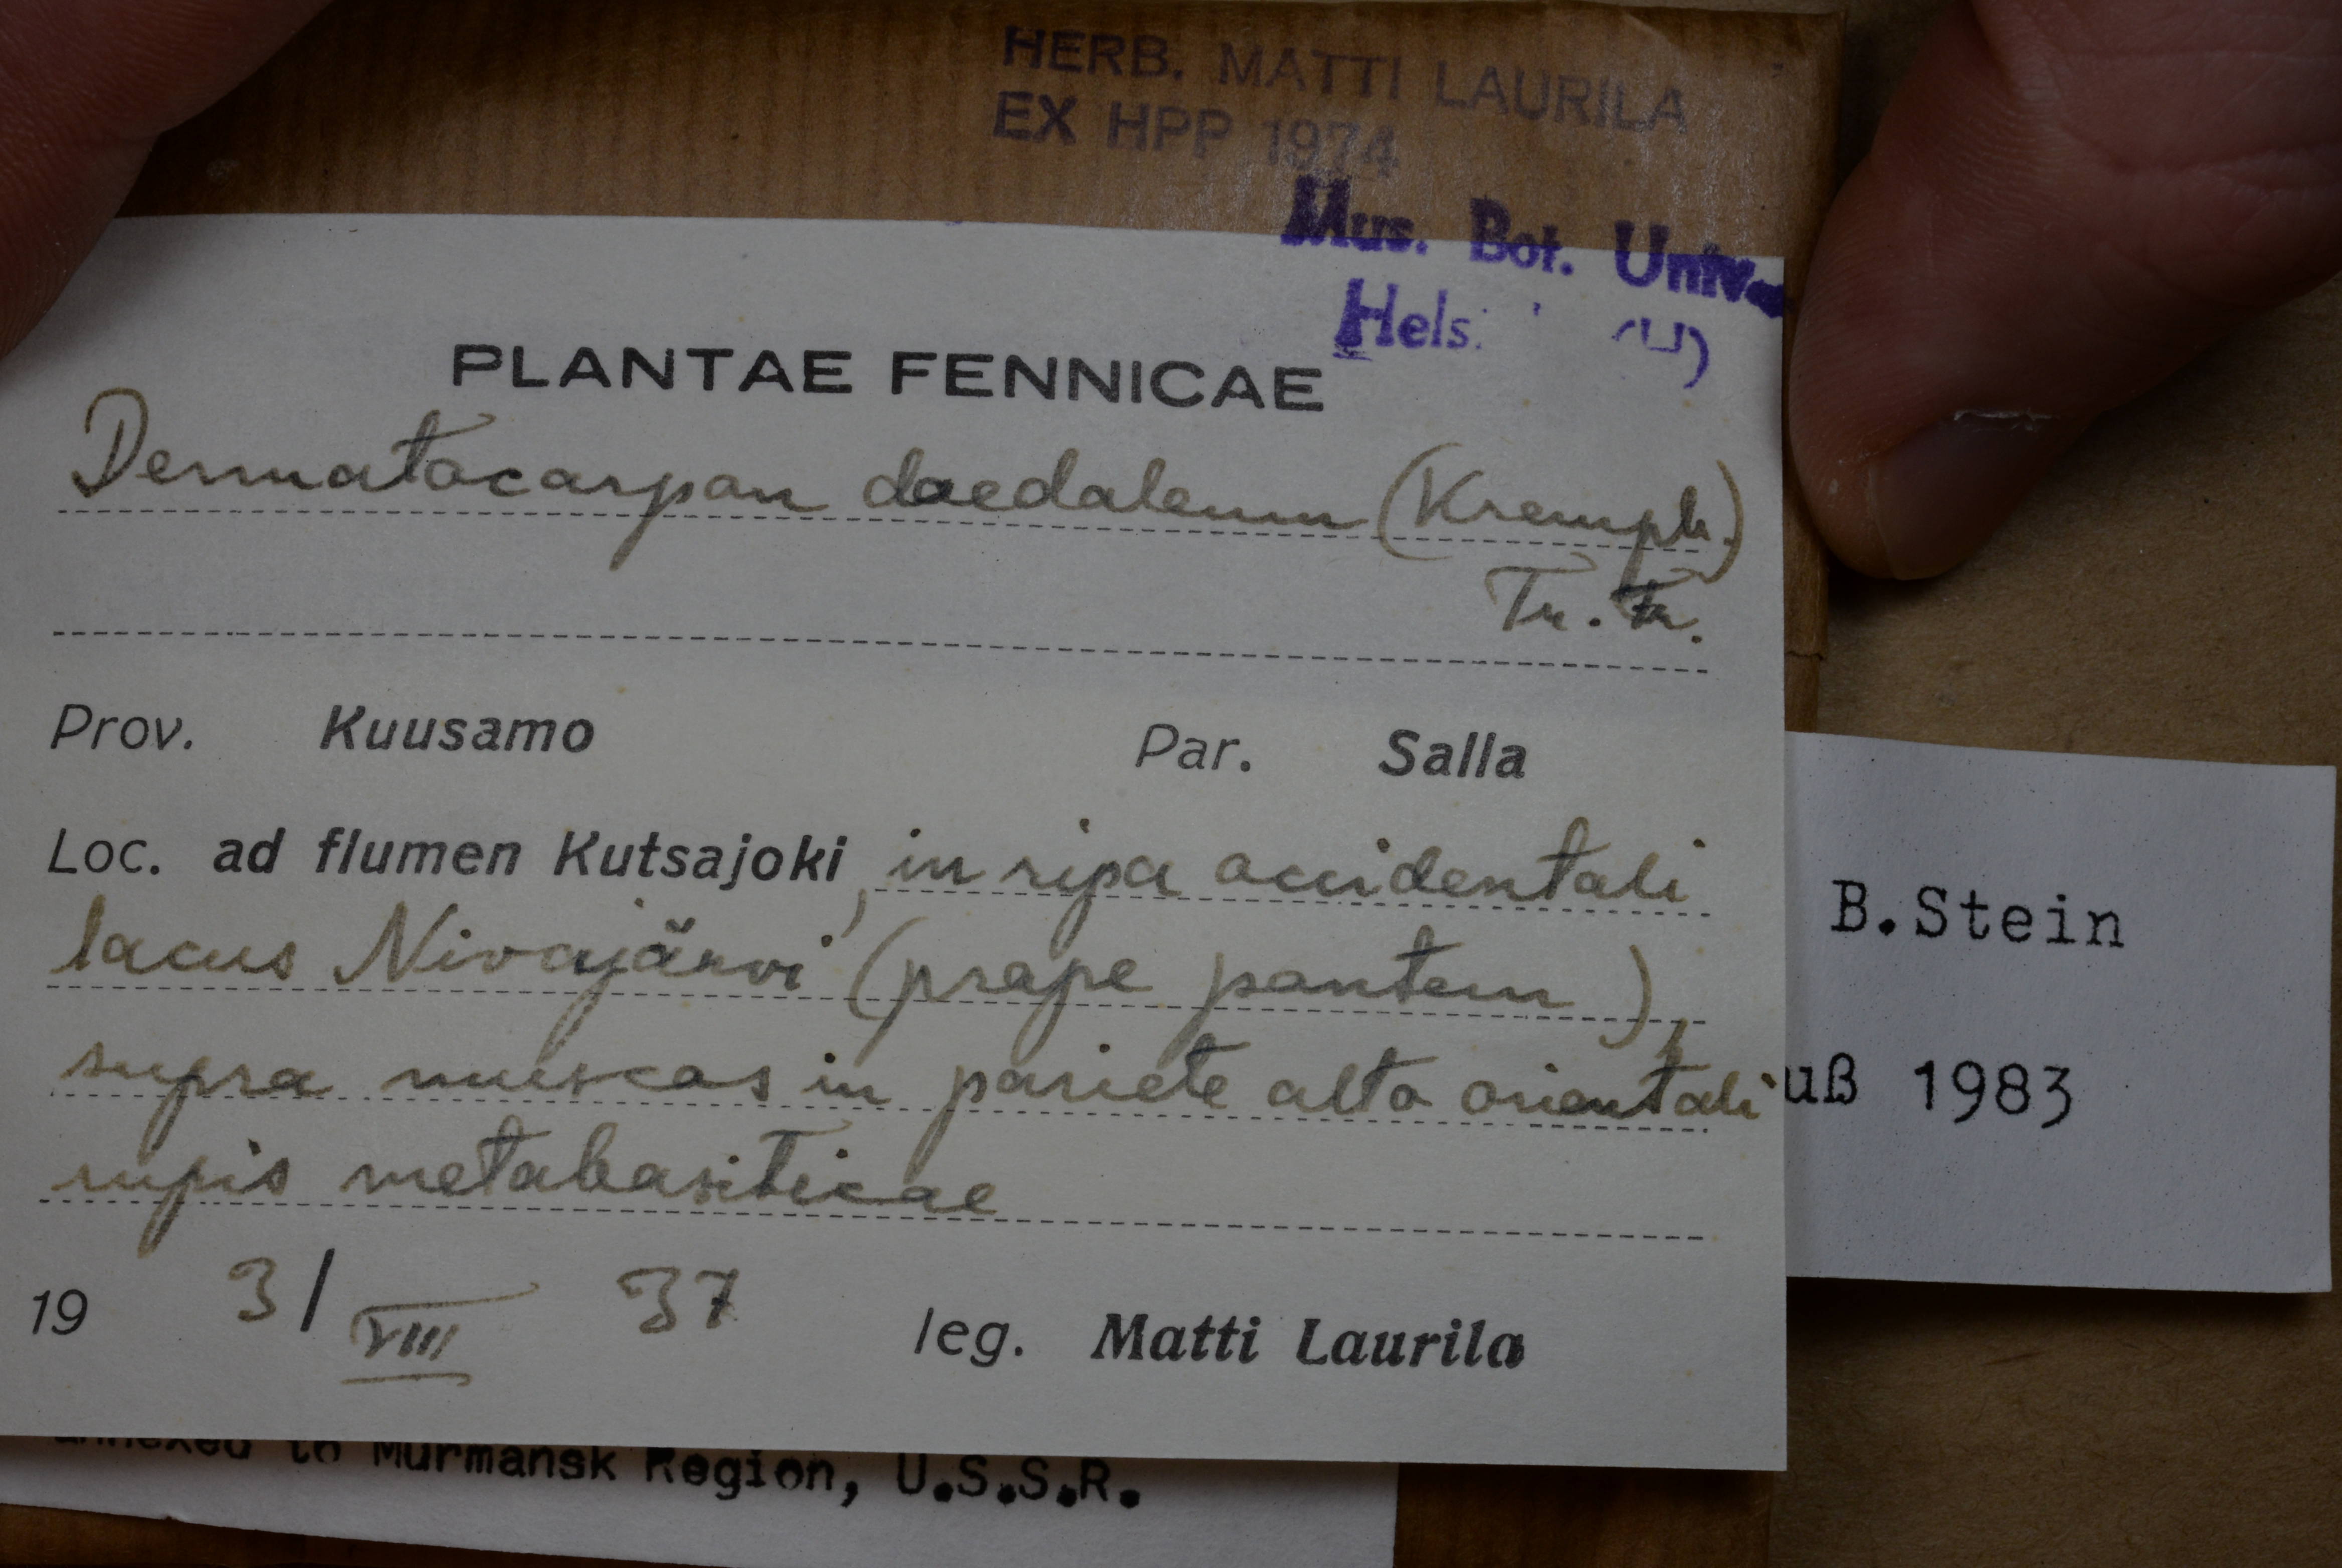 HERB. MATTI LAURILA
EX HPP 1974
Mus. Bot. Univ.
Hels. (H)
PLANTAE FENNICAE
Dermatocarpon daedaleum (Krempb.)
Th. Fr.
Prov. Kuusamo Par. Salla
Loc. ad flumen Kutsajoki, in ripa occidentali
lacus Nivajärvi (prope pontem),
supra muscos in pariete alto orientali
rupis metabasiticae
19 3/VIII 37 leg. Matti Laurila
B.Stein
uß 1983
annexed to Murmansk Region, U.S.S.R.